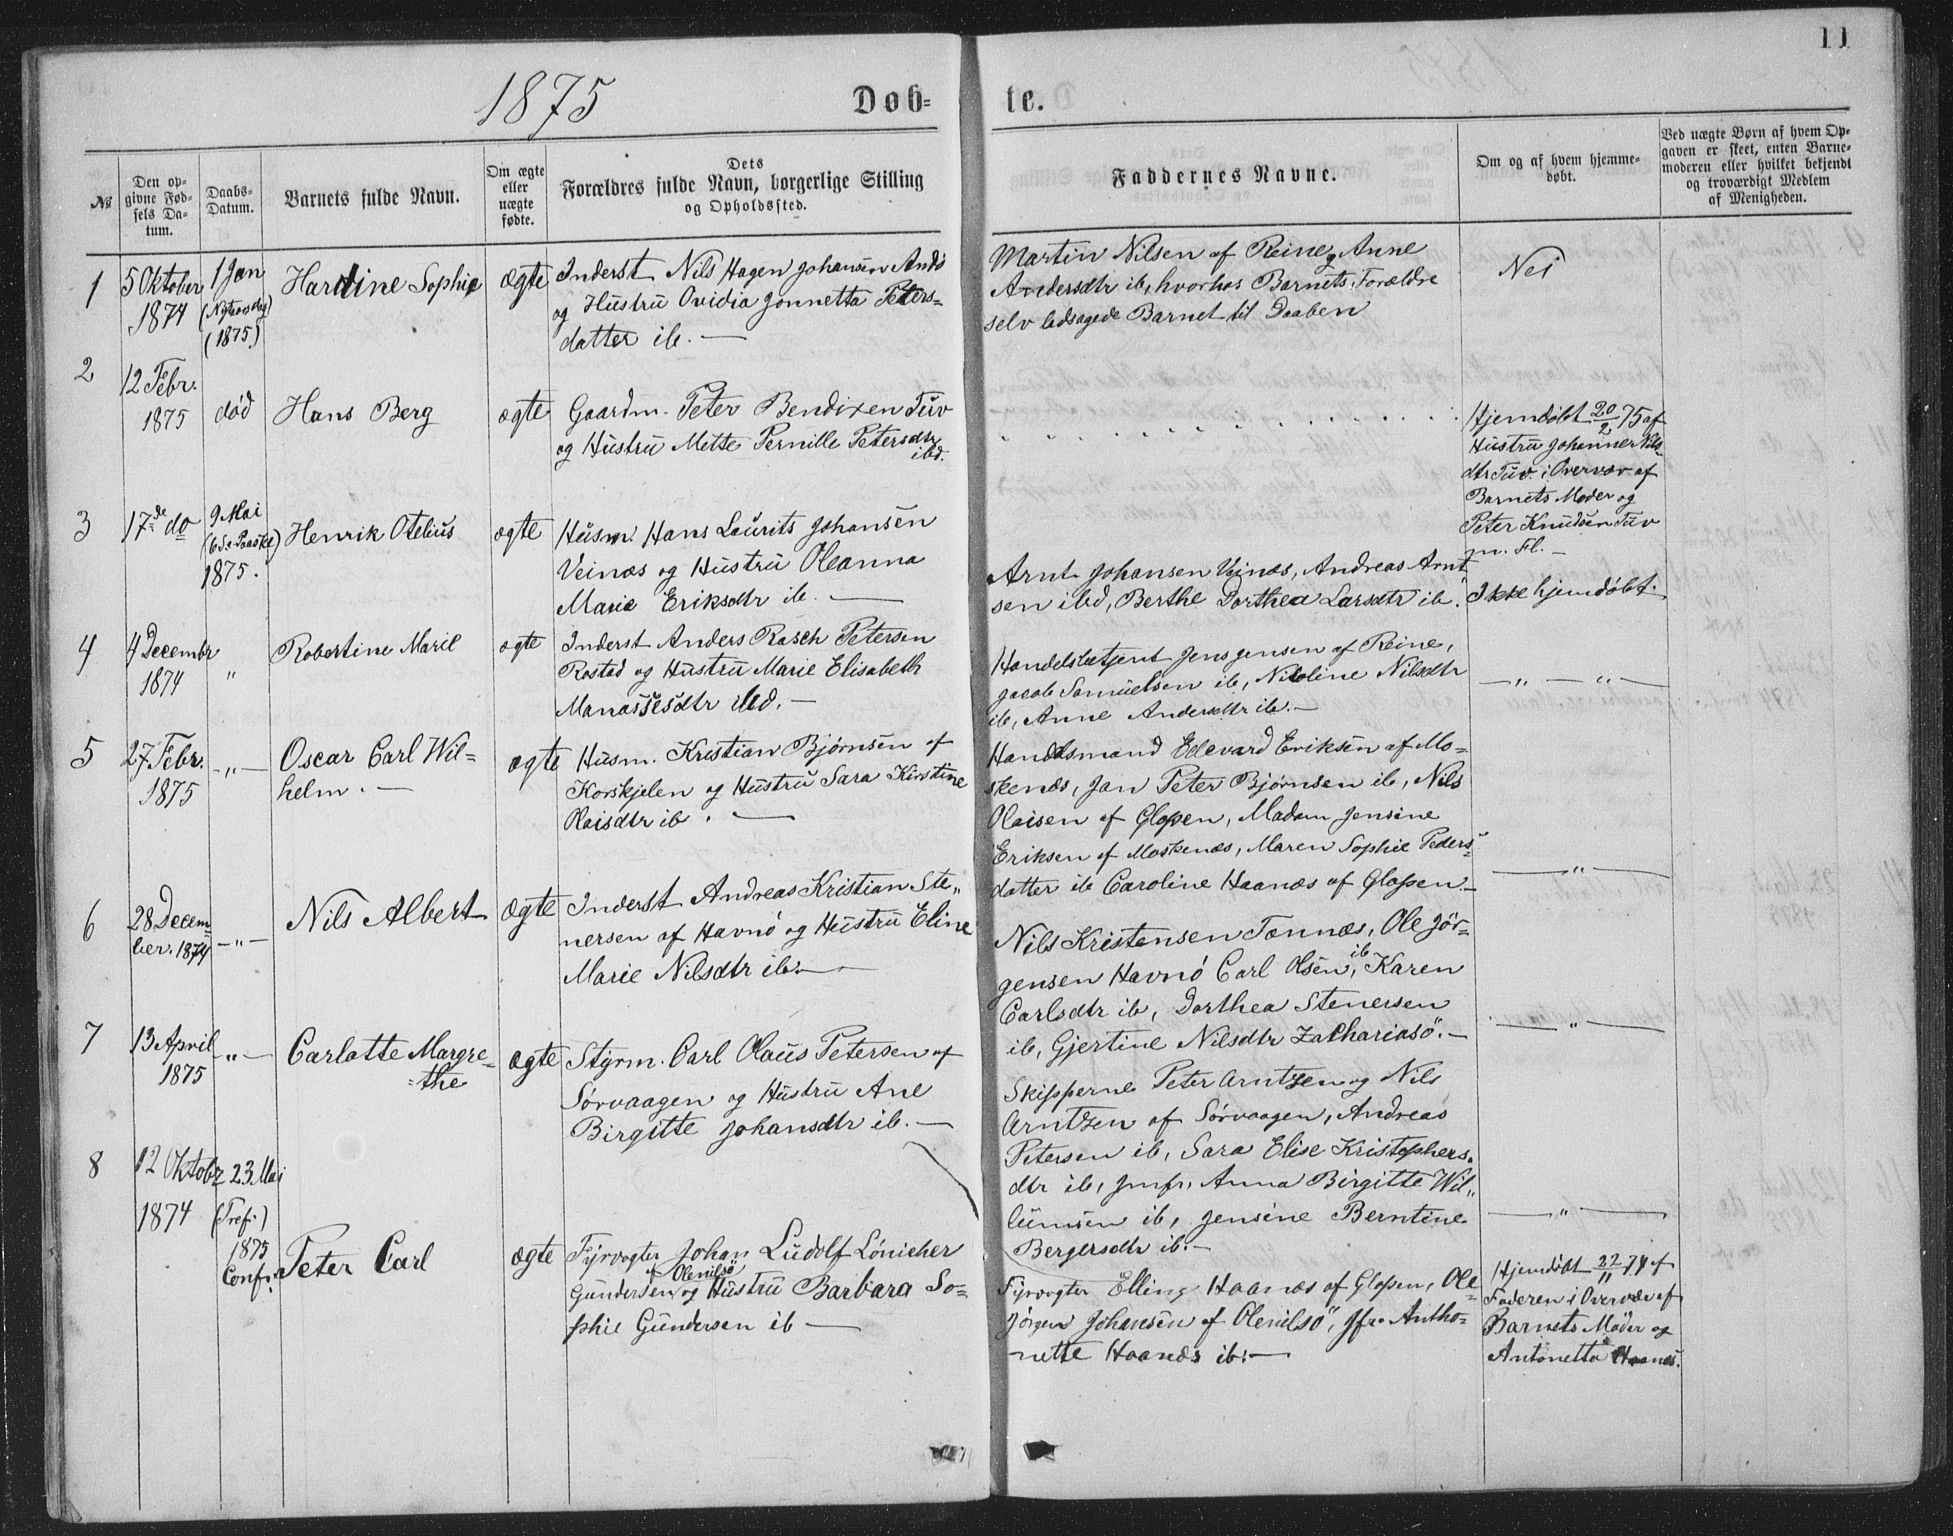 11
1875
Døb-
te.
№
Den op-
givne Fød-
sels Da-
tum.
Daabs-
Datum.
Barnets fulde Navn.
Om ægte
eller
uægte
fødte.
Dets
Forældres fulde Navn, borgerlige Stilling
og Opholdssted.
Faddernes Navne.
Om og af hvem hjemme-
døbt.
Ved uægte Børn af hvem Op-
gaven er skeet, enten Barne-
moderen eller hvilket bekjendt
og troværdigt Medlem
af Menigheden.
1
5 Oktober
1874
1 Jan
(Nytaarsdag)
(1875)
Hardine Sophie
ægte
Inderst Nils Hagen Johansen Andø
og Hustru Ovidia Jonnetta Peters-
datter ib. —
Martin Nilsen af Reine, Anne
Andersdtr ib, hvorhos Barnets Forældre
selv ledsagede Barnet til Daaben
Nei
2
12 Febr.
1875
død
Hans Berg
ægte
Gaardm. Peter Bendixen Tuv
og Hustru Mette Pernille Petersdtr
ibd.
Hjemdøbt 20/2 75 af
Hustru Johanne Nils-
dtr Tuv i Overvær af
Barnets Moder og
Peter Knudsen Tuv
m. Fl. —
3
17de do
9 Mai
(6 S. e. Paaske)
1875.
Henrik Otelius
ægte
Husm. Hans Laurits Johansen
Veinæs og Hustru Oleanna
Marie Eriksdtr ib. —
Arnt Johansen Veinæs, Andreas Arnt-
sen ibd, Berthe Dorthea Larsdtr ib.
Ikke hjemdøbt.
4
4 Decembr
1874
"
Robertine Marie
ægte
Inderst Anders Rasch Petersen
Rostad og Hustru Marie Elisabeth
Manassesdtr ibd. —
Handelsbetjent Jens Jensen af Reine,
Jacob Samuelsen ib, Nikoline Nilsdtr
ib, Anne Andersdtr ib. —
— " — " —
5
27 Febr.
1875
— " —
Oscar Carl Wil-
helm. —
ægte
Husm. Kristian Bjørnsen af
Korskjelen og Hustru Sara Kirstine
Olaisdtr ib. —
Handelsmand Edevard Eriksen af Mo-
skenæs, Jan Peter Bjørnsen ib, Nils
Olaisen af Glopen, Madam Jensine
Eriksen af Moskenæs, Maren Sophie Peders-
datter ib Caroline Haanæs af Glopen —
— " —
6
28 Decem-
ber. 1874
— " —
Nils Albert
ægte
Inderst Andreas Kristian Ste-
nersen af Havnø og Hustru Eline
Marie Nilsdtr ib. —
Nils Kristensen Tennæs, Ole Jør-
gensen Havnø Carl Olsen ib, Karen
Carlsdtr ib, Dorthea Stenersen
ib, Gjertine Nilsdtr Zachariasø. —
— " —
7
13 April
1875
— " —
Carlotte Margre-
the
ægte
Styrm. Carl Olaus Petersen af
Sørvaagen og Hustru Ane
Birgitte Johansdtr ib. —
Skipperne Peter Arntzen og Nils
Arntzen af Sørvaagen, Andreas
Petersen ib, Sara Elise Kristophers-
dtr ib, Jmfr, Anna Birgitte Wil-
lumsen ib, Jensine Berntine
Bergersdtr ib. —
— " —
8
12 Oktobr
1874
23 Mai
(Tref.)
1875
Conf.
Peter Carl
ægte
Fyrvogter Johan Ludolf Lønicher
Gundersen af Olenilsø og Hustru Barbara So-
phie Gundersen ib —
Fyrvogter Elling Haanæs af Glopen, Ole
Jørgen Johansen af Olenilsø, Jfr. Antho-
nette Haanæs ib. —
Hjemdøbt 22/11 74 af
Faderen i Overvær af
Barnets Moder og
Antonetta Haanæs.